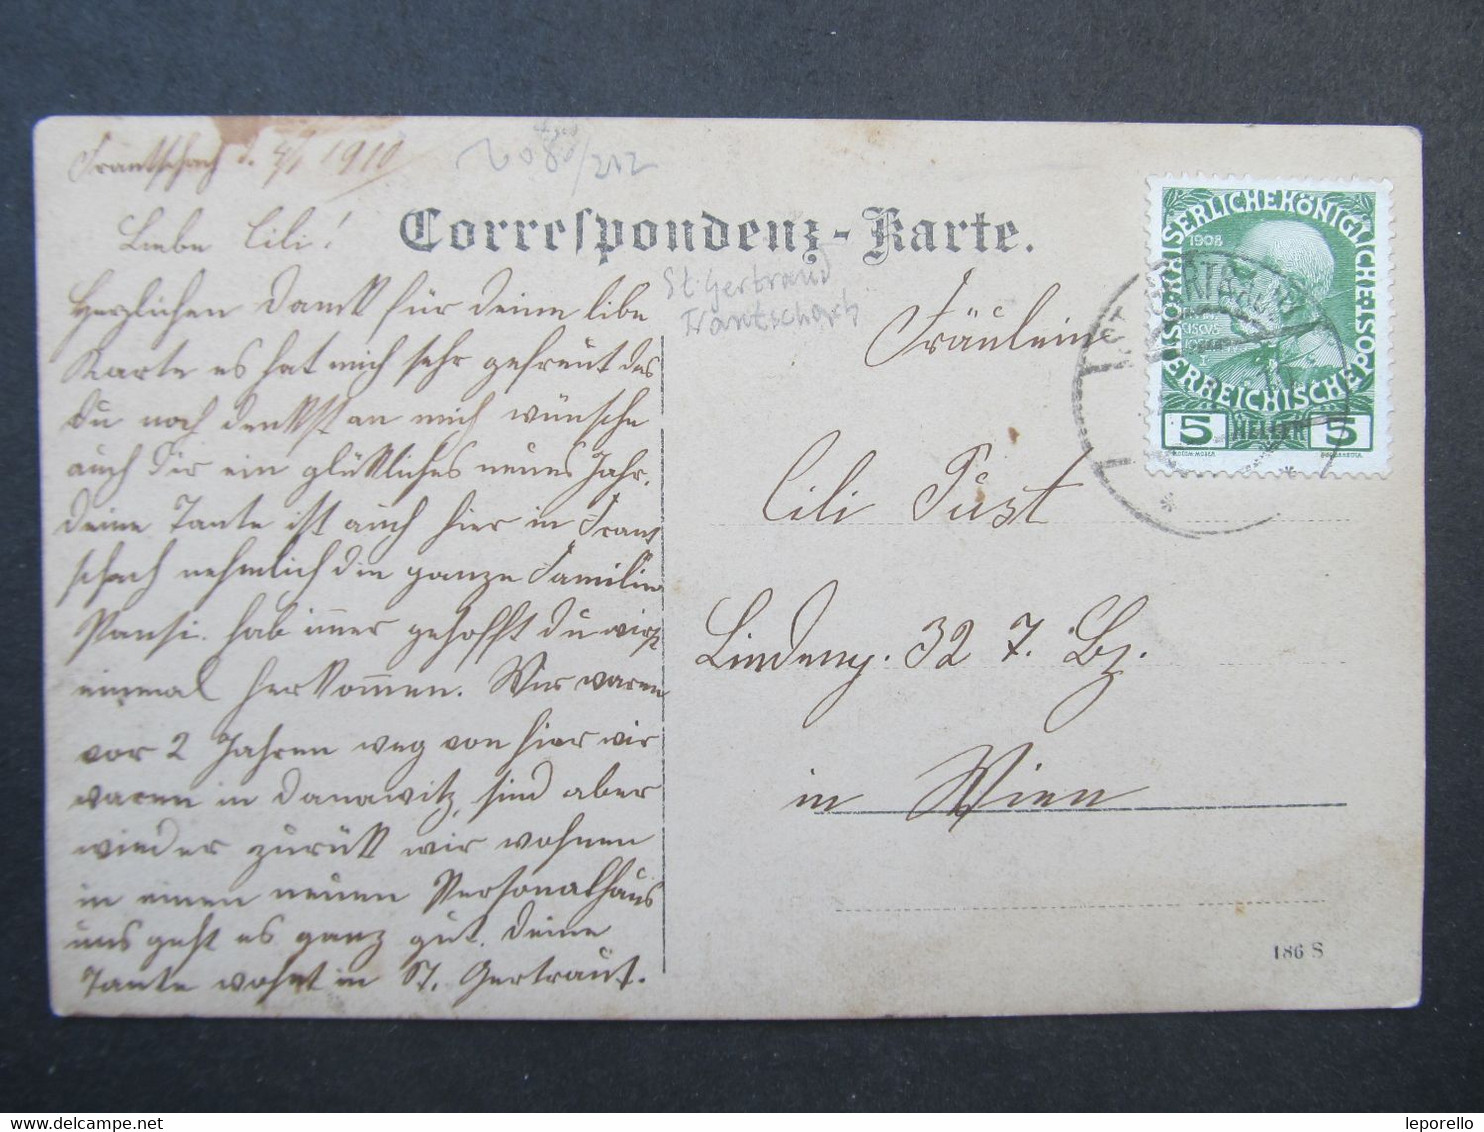 Frantschach d. 4/1 1910
2080/212
Correspondenz-Karte.
St. Gertraud
Frantschach
Liebe Cili!
Herzlichen Dank für deine libe
Karte es hat mich sehr gefreut das
du noch denkst an mich wünsche
auch Dir ein glükliches neues Jahr.
deine Tante ist auch hier in Frant
schach nehmlich die ganze Familie
Pansi. hab immer gehofft du wirst
einmal herkommen. Wir waren
vor 2 Jahren weg von hier wir
waren in Donawitz, sind aber
wieder zurükk wir wohnen
in einen neuen Personalhaus
uns geht es ganz gut. deine
Tante wohnt in St. Gertraut.
Fräulein
Cili Pust
Lindeng. 32 7. Bz.
in Wien
186 S
KAISERLICHE KÖNIGLICHE
ÖSTERREICHISCHE POST
1908
5 HELLER 5
leporello